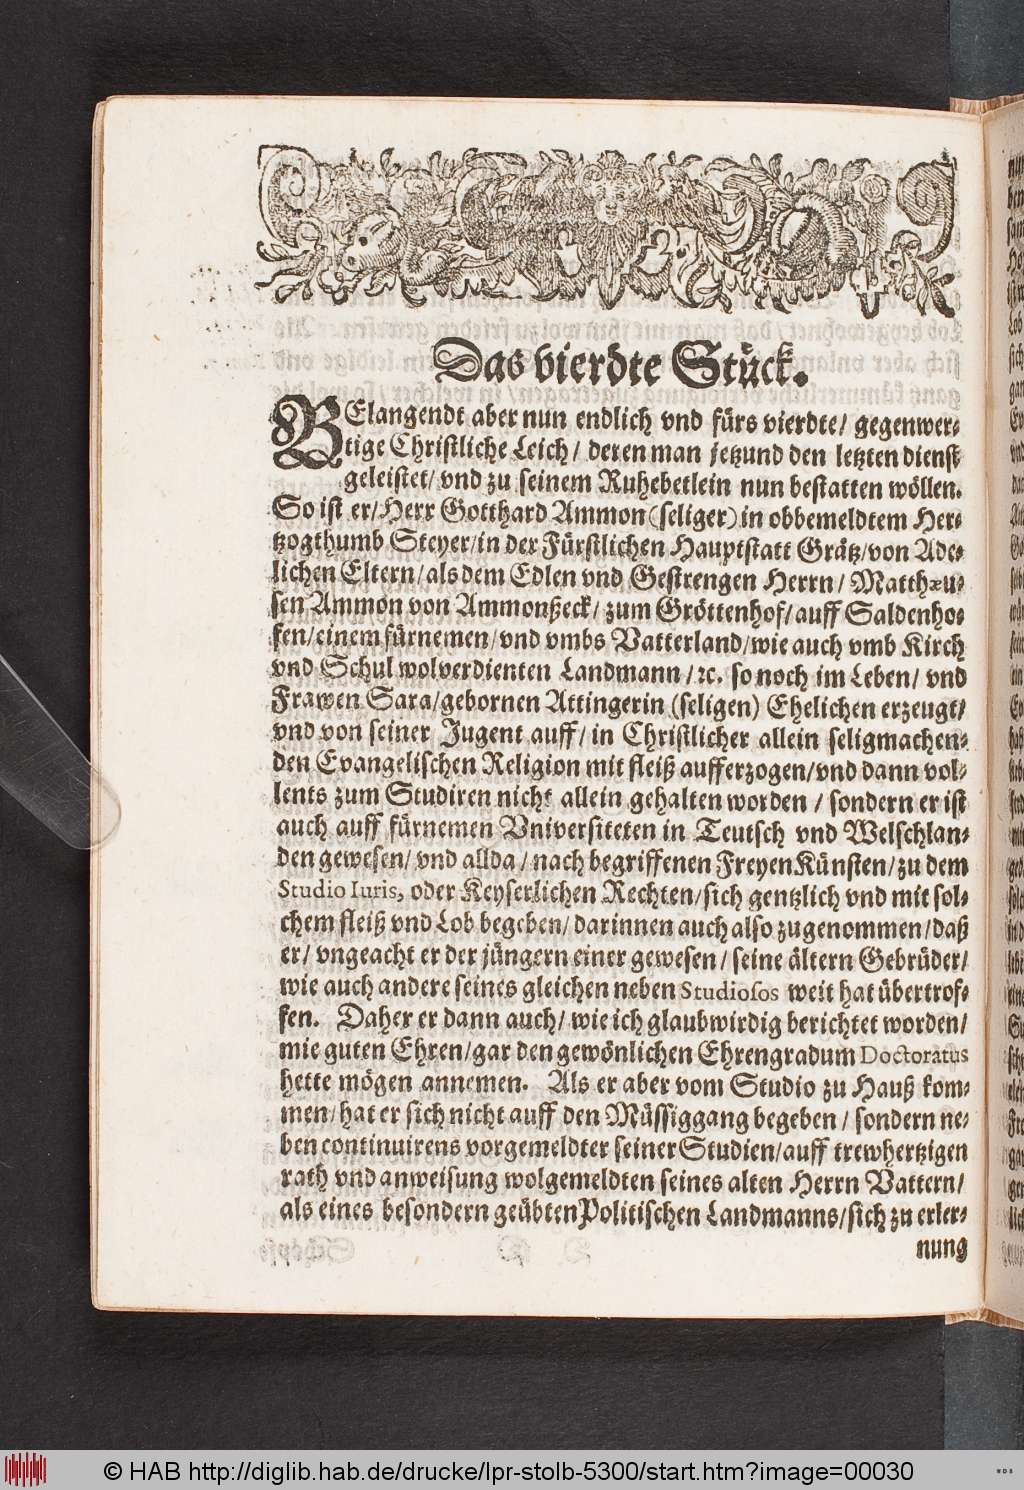 Das vierdte Stück.
BElangendt aber nun endlich vnd fürs vierdte/ gegenwer-
tige Christliche Leich/ deren man jetzund den letzten dienst
geleistet/ vnd zu seinem Ruhebetlein nun bestatten wöllen.
So ist er/ Herr Gotthard Ammon (seliger) in obbemeldtem Her-
tzogthumb Steyer/ in der Fürstlichen Hauptstatt Grätz/ von Ade-
lichen Eltern/ als dem Edlen vnd Gestrengen Herrn/ Matthæu-
sen Ammon von Ammonßeck/ zum Gröttenhof/ auff Saldenho-
fen/ einem fürnemen/ vnd vmbs Vatterland/ wie auch vmb Kirch
vnd Schul wolverdienten Landmann/ ꝛc. so noch im Leben/ vnd
Frawen Sara/ gebornen Attingerin (seligen) Ehelichen erzeugt/
vnd von seiner Jugent auff/ in Christlicher allein seligmachen-
den Evangelischen Religion mit fleiß aufferzogen/ vnd dann vol-
lents zum Studiren nicht allein gehalten worden / sondern er ist
auch auff fürnemen Vniversiteten in Teutsch vnd Welschlan-
den gewesen/ vnd allda / nach begriffenen Freyen Künsten/ zu dem
Studio Iuris, oder Keyserlichen Rechten/ sich gentzlich vnd mit sol-
chem fleiß vnd Lob begeben/ darinnen auch also zugenommen/ daß
er/ vngeacht er der jüngern einer gewesen/ seine ältern Gebrüder/
wie auch andere seines gleichen neben Studiosos weit hat übertrof-
fen. Daher er dann auch/ wie ich glaubwirdig berichtet worden/
mie guten Ehren/ gar den gewönlichen Ehrengradum Doctoratus
hette mögen annemen. Als er aber vom Studio zu Hauß kom-
men/ hat er sich nicht auff den Müssiggang begeben / sondern ne-
ben continuirens vorgemeldter seiner Studien/ auff trewhertzigen
rath vnd anweisung wolgemeldten seines alten Herrn Vattern/
als eines besondern geübten Politischen Landmanns/ sich zu erler-
nung
© HAB http://diglib.hab.de/drucke/lpr-stolb-5300/start.htm?image=00030